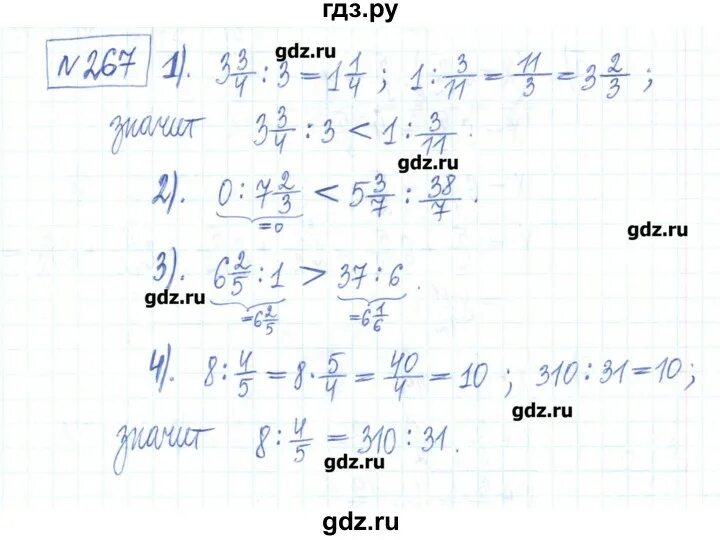 гдз.ру
№267 1). 3 3/4 : 3 = 1 1/4 ; 1 : 3/11 = 11/3 = 3 2/3 ;
gdz.ru
значит 3 3/4 : 3 < 1 : 3/11 .
gdz.ru
2). 0 : 7 2/3 < 5 3/7 : 38/7 .
=0
gdz.ru
3). 6 2/5 : 1 > 37 : 6 .
gdz.ru
=6 2/5 =6 1/6
4). 8 : 4/5 = 8 · 5/4 = 40/4 = 10 ; 310 : 31 = 10 ;
gdz.ru
значит 8 : 4/5 = 310 : 31 .
gdz.ru
gdz.ru